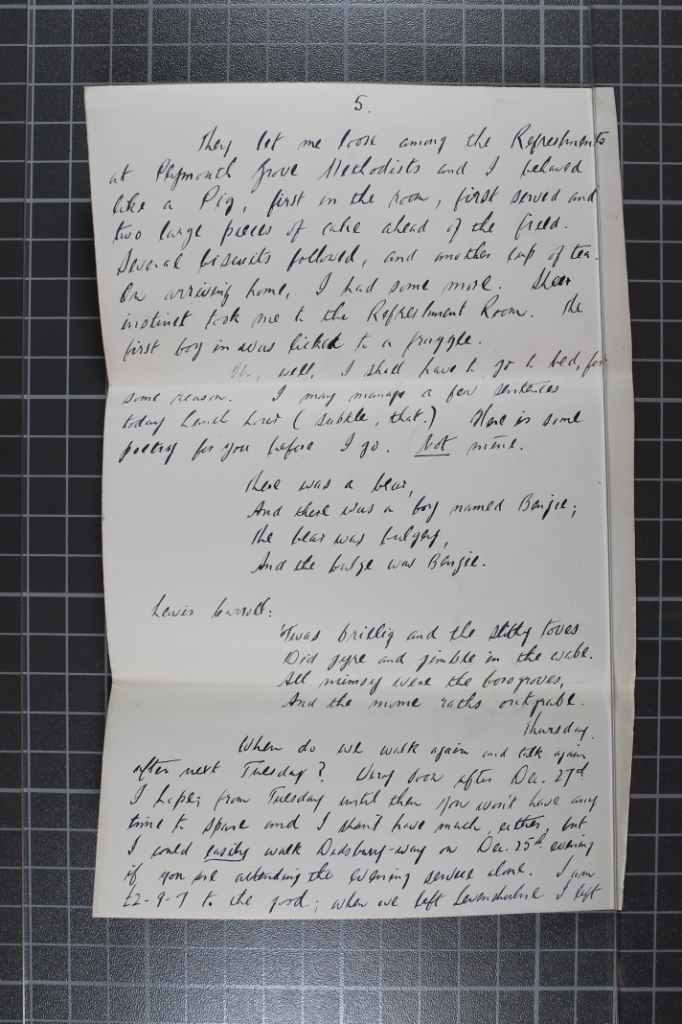 5.
They let me loose among the Refreshments
at Plymouth Grove Methodists and I behaved
like a Pig, first in the room, first served and
two large pieces of cake ahead of the field.
Several biscuits followed, and another cup of tea.
On arriving home, I had some more. Sheer
instinct took me to the Refreshment Room. The
first boy in was licked to a frazzle.
Oh, well, I shall have to go to bed, for
some reason. I may manage a few sentences
today Lunch hour (subtle, that.) Here is some
poetry for you before I go. Not mine.
There was a bear,
And there was a boy named Benjie;
The bear was bulgy,
And the bulge was Benjie.
Lewis Carroll:
'Twas brillig and the slithy toves
Did gyre and gimble in the wabe.
All mimsy were the borogroves,
And the mome raths outgrabe.
Thursday.
When do we walk again and talk again
after next Tuesday? Very soon after Dec. 27th
I hope; from Tuesday until then you won't have any
time to spare and I shan't have much, either, but
I could easily walk Didsbury-way on Dec. 25th evening
if you are attending the evening service alone. I am
£2-9-7 to the good; when we left Levenshulme I left